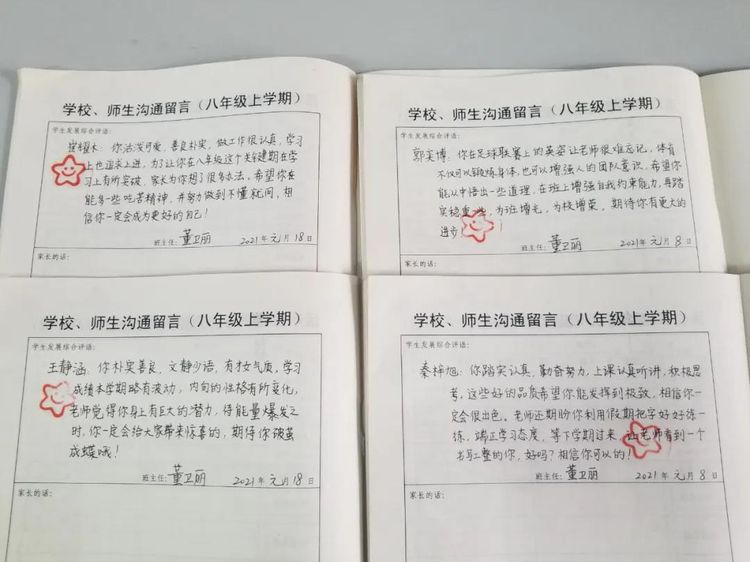 学校、师生沟通留言（八年级上学期）
学生发展综合评语：
崔耀木：你活泼可爱，善良朴实，做工作很认真，学习
上也追求上进，为了让你在八年级这个关键期在学
习上有所突破，家长为你想了很多办法，希望你在
能多一些吃苦精神，并努力做到不懂就问，相
信你一定会成为更好的自己！
班主任：董卫丽 2021年元月18日
家长的话：
学校、师生沟通留言（八年级上学期）
学生发展综合评语：
郭奕博：你在足球联赛上的英姿让老师很难忘记，体育
不仅可以锻炼身体，也可以增强人的团队意识，希望你
能从中悟出一些道理，在班上增强自我约束能力，再踏
实稳重一些，为班增光，为校增荣，期待你有更大的
进步！
班主任：董卫丽 2021年元月8日
家长的话：
学校、师生沟通留言（八年级上学期）
学生发展综合评语：
王静涵：你朴实善良，文静少语，有才女气质，学习
成绩本学期略有波动，内向的性格有所变化，
老师觉得你身上有巨大的潜力，待能量爆发之
时，你一定会给大家带来惊喜的，期待你破茧
成蝶哦！
班主任：董卫丽 2021年元月18日
家长的话：
学校、师生沟通留言（八年级上学期）
学生发展综合评语：
秦梓旭：你踏实认真，勤奋努力，上课认真听讲，积极思
考，这些好的品质希望你能发挥到极致，相信你一
定会很出色。老师还期盼你利用假期把字好好练一
练，端正学习态度，等下学期过来，让老师看到一个
书写工整的你，好吗？相信你可以的！
班主任：董卫丽 2021年元月8日
家长的话：